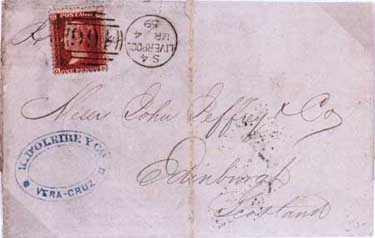 POSTAGE
ONE PENNY
466
LIVERPOOL
S 4
MR 4
59
Messrs John Jeffrey & Co
Edinburgh
Scotland
R. D'OLEIRE Y CO
VERA-CRUZ